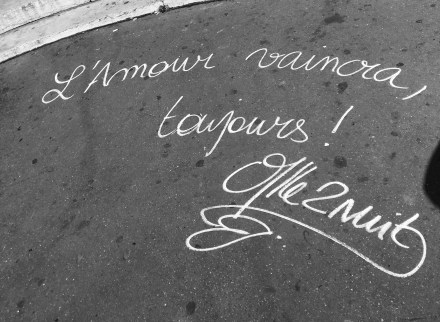 L'Amour vaincra,
toujours !
Mlle 2nuit